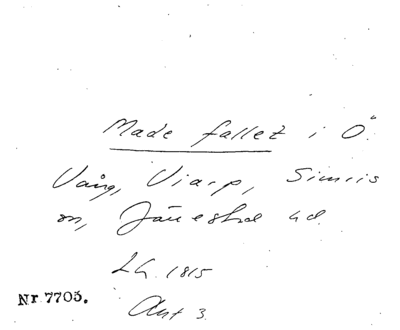 Made fallet i Ö.
Vång, Viarp, Simris
sn, Järrestad hd.
LG. 1815
Nr 7705.
Aut 3.